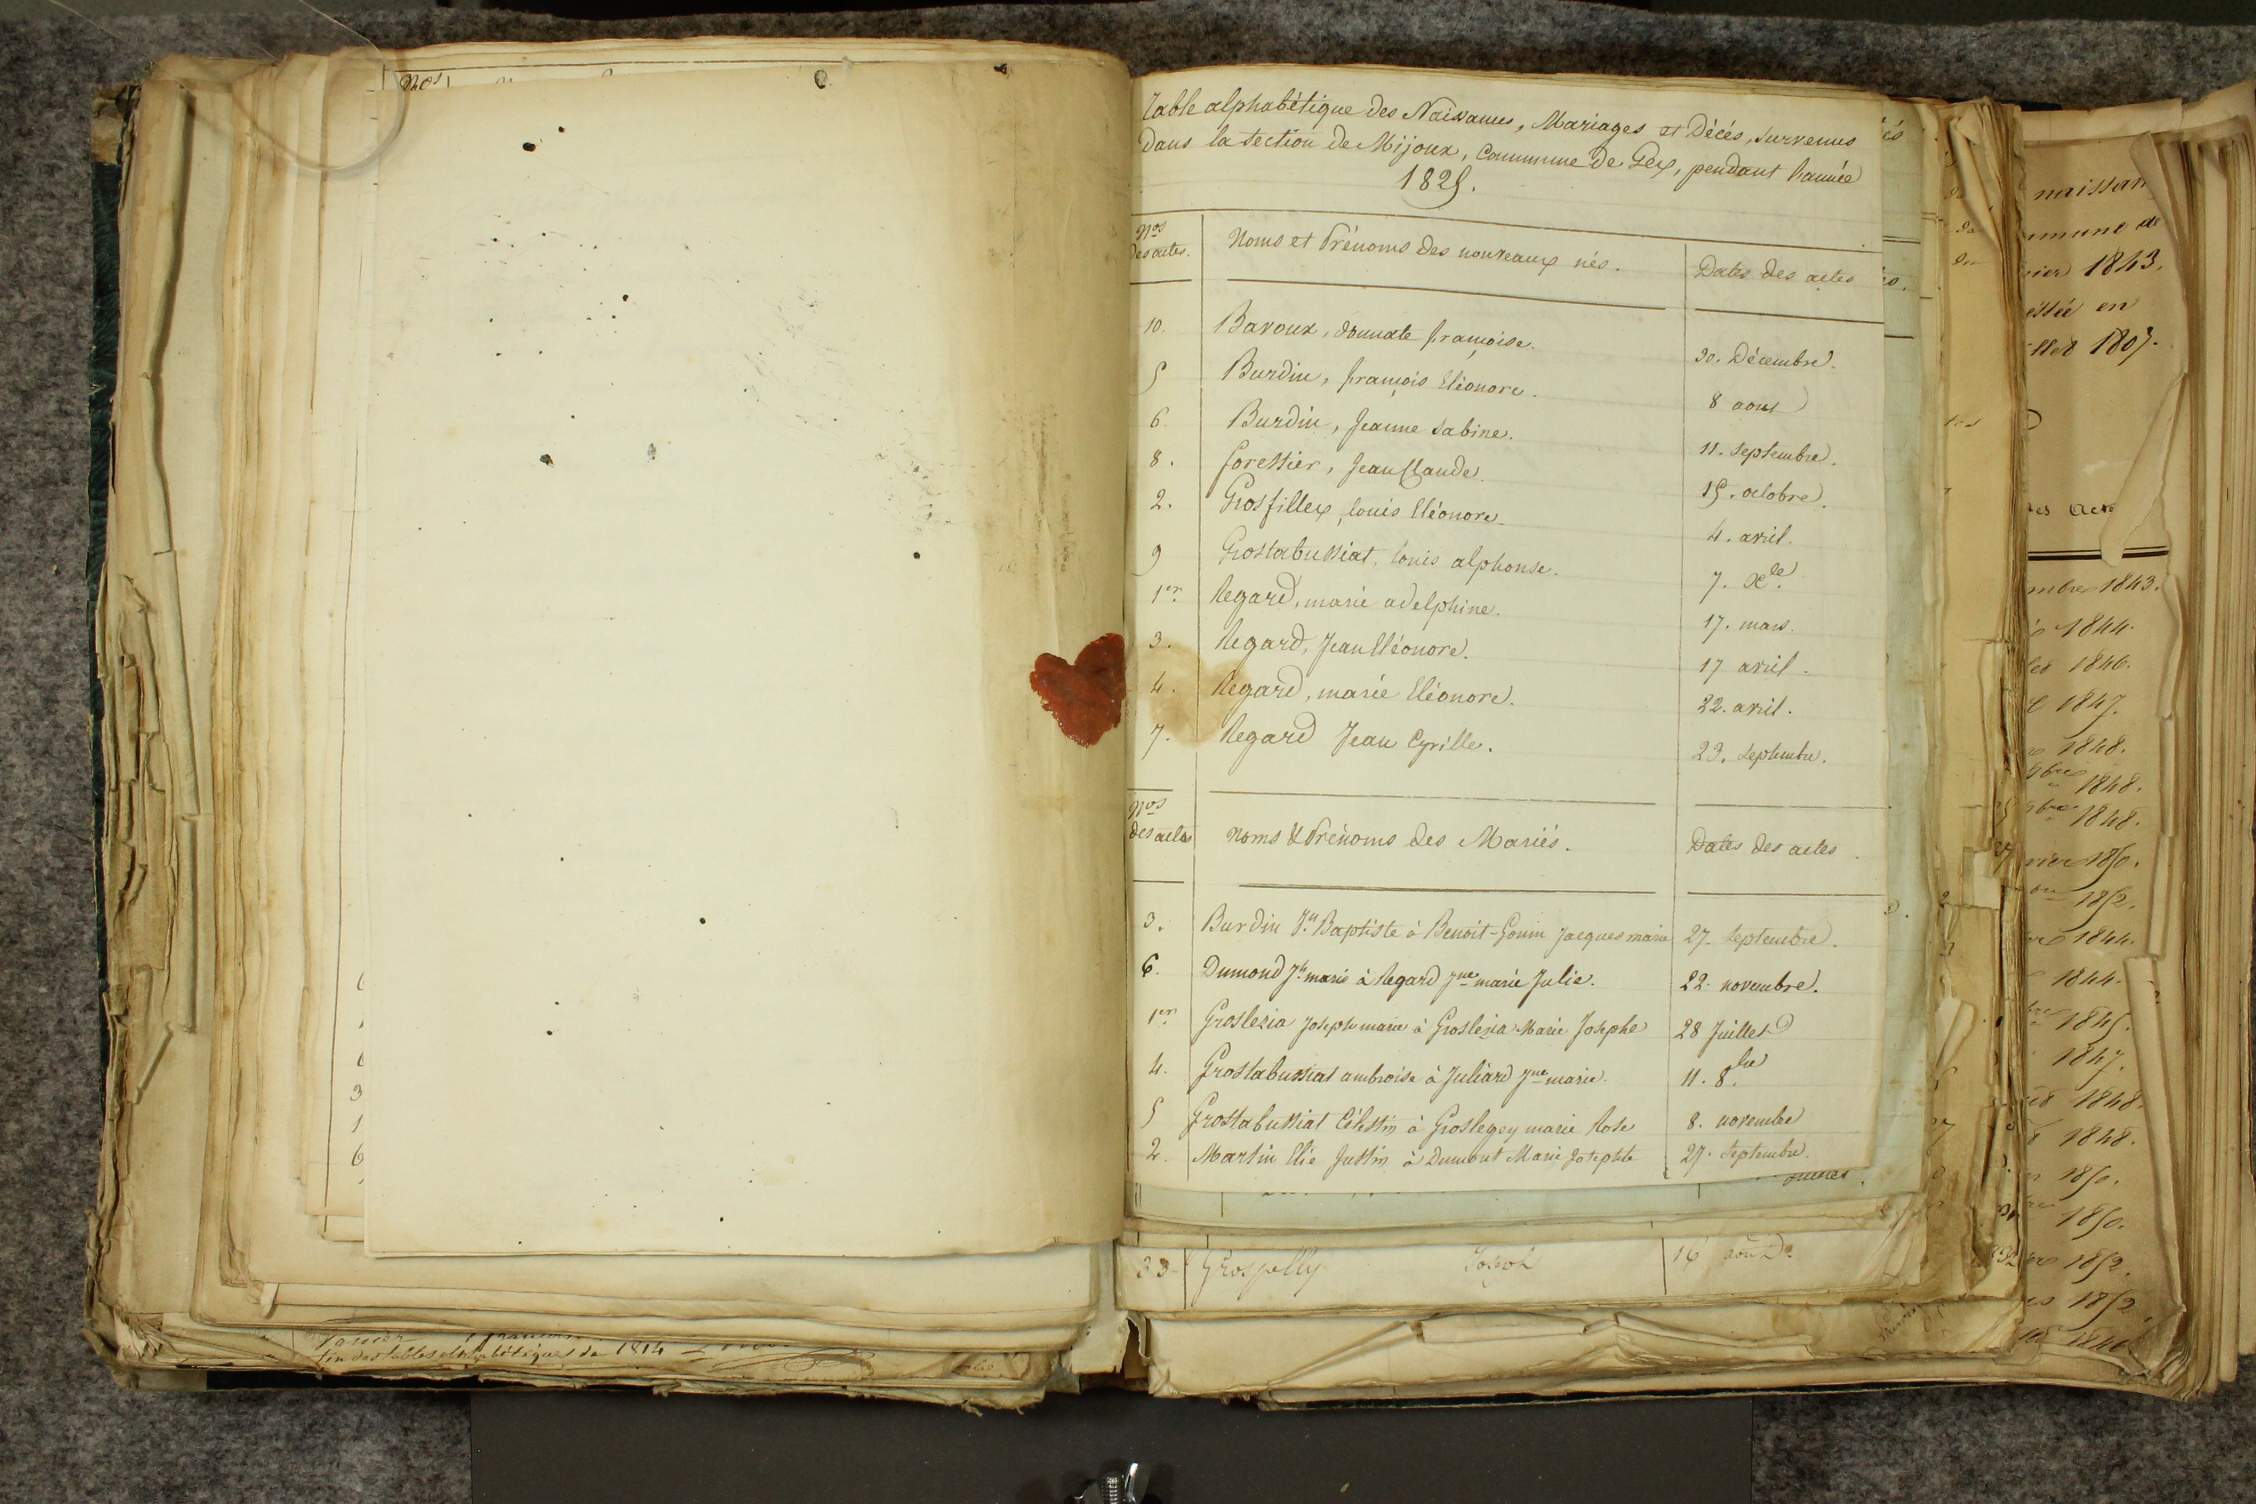 Table alphabétique des Naissances, Mariages et Décés, survenus
dans la section de Mijoux, Commune de Gex, pendant l'année
1825.
Nos des actes. Noms et Prénoms des nouveaux nés. Dates des actes
10. Baroux, donnate françoise. 30. Décembre.
5 Burdin, françois Eléonore. 8 aout
6. Burdin, Jeanne Sabine. 11. Septembre.
8. forestier, Jean Claude. 15. octobre.
2. Grosfillex, louis Eléonore. 4. avril.
9 Grostabussiat, louis alphonse. 7. Xbre.
1er Regard, marie adelphine. 17. mars.
3. Regard, Jean Eléonore. 17 avril.
4. Regard, marie Eléonore. 22. avril.
7. Regard Jean Cyrille. 23. Septembre.
Nos des actes Noms & Prénoms des Mariés. Dates des actes.
3. Burdin Jn Baptiste à Benoit-Gonin Jacques marie 27. Septembre.
6. Dumond Jh marie à Regard Jne marie Julie. 22. novembre.
1er Groslezia Joseph marie à Groslezia Marie Josephe 28 Juillet
4. Grostabussiat ambroise à Juliard Jne marie. 11. 8bre
5 Grostabussiat Célestin à Grosgey marie Rose 8. novembre
2. Martin Elie Justin à Dumont Marie Josephte 27. Septembre.
33 Grospelly Joseph 16 aout
fin des tables alphabétiques de 1814
Nos
naissan
mmune de
vier 1843.
1807.
mbre 1843.
1844.
1846.
1847.
1848.
1848.
1848.
1850.
1852.
1844.
1844.
1845.
1847.
1848.
1848.
1850.
1850.
1852.
1852